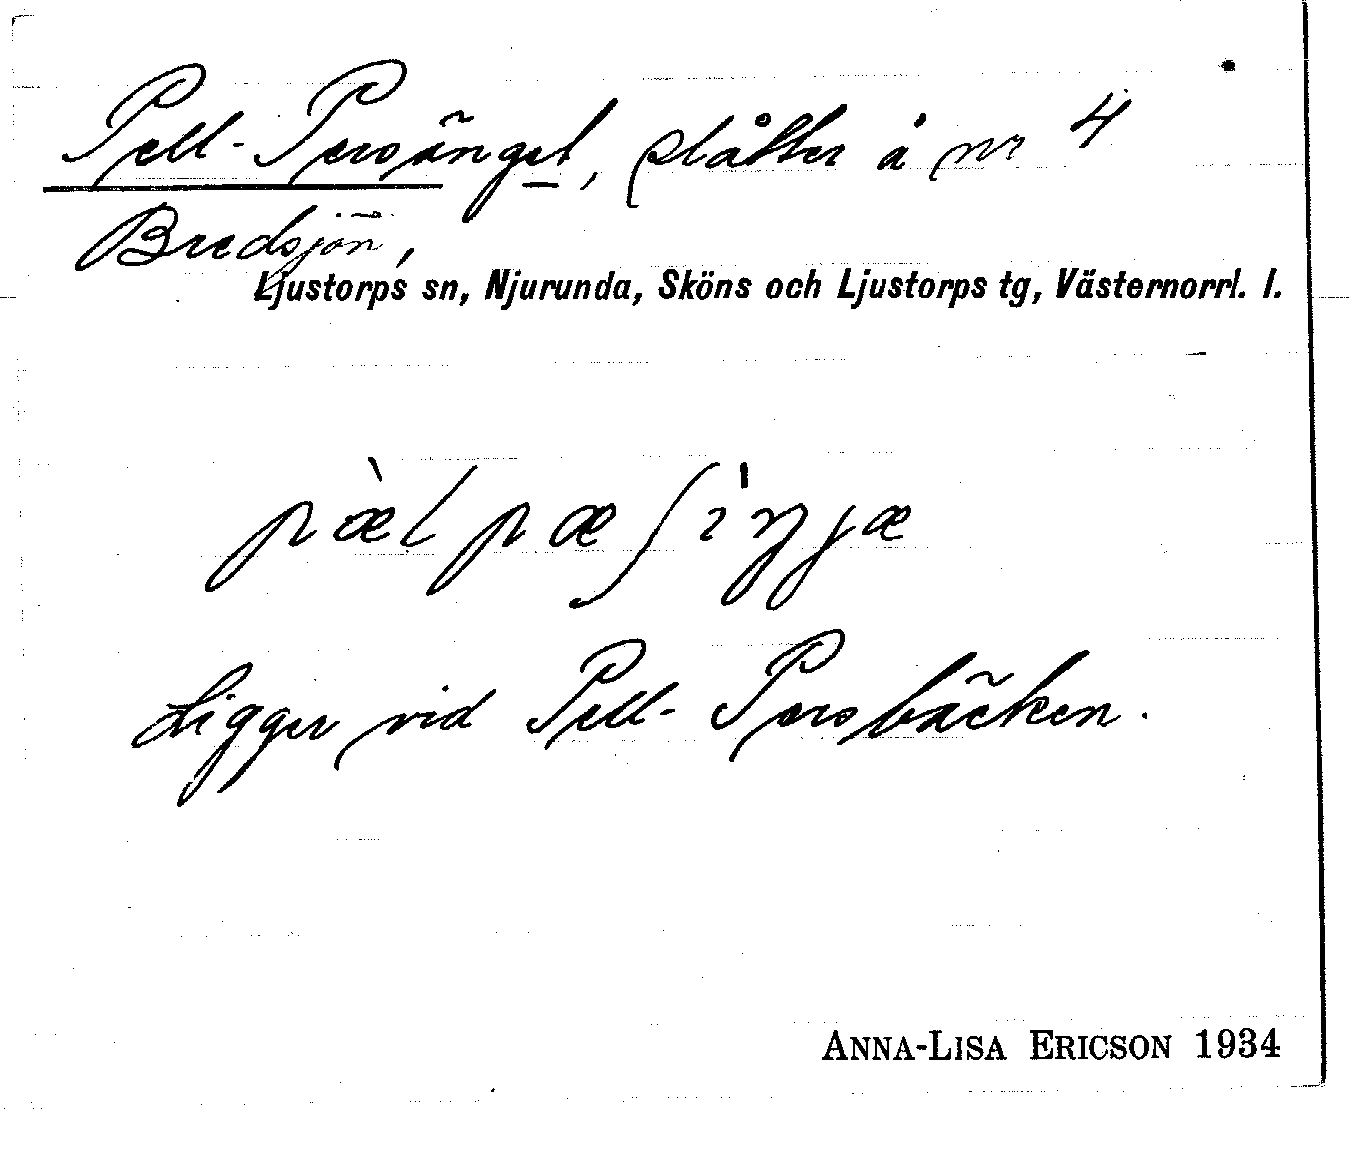 Pell-Persänget, slåtter å nr 4
Bredsjön,
Ljustorps sn, Njurunda, Sköns och Ljustorps tg, Västernorrl. l.
pæ̀l pæʃìŋjæ
Ligger vid Pell-Persbäcken.
ANNA-LISA ERICSON 1934